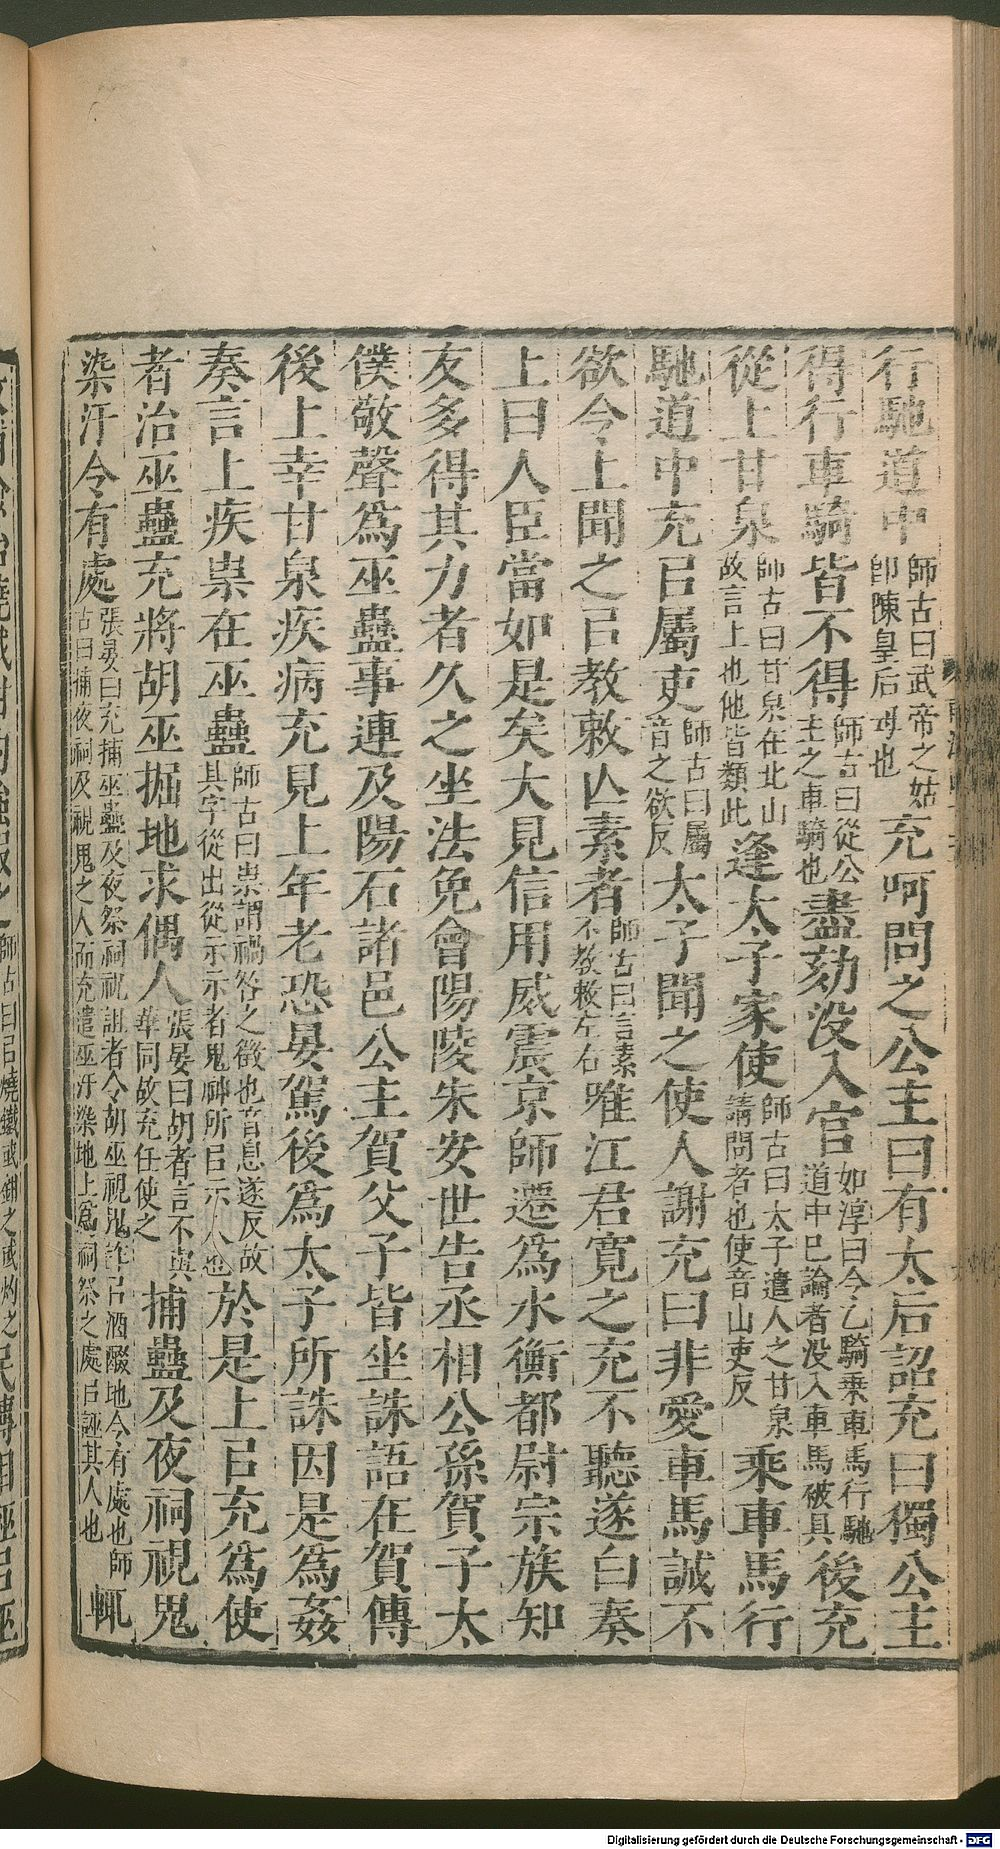 行馳道中師古曰武帝之姑卽陳皇后母也充呵問之公主曰有太后詔充曰獨公主
得行車騎皆不得師古曰從公主之車騎也盡劾没入官如淳曰令乙騎乗車馬行馳道中已論者没入車馬被具後充
從上甘泉師古曰甘泉在北山故言上也他皆類此逢太子家使師古曰太子遣人之甘泉請問者也使音山吏反乗車馬行
馳道中充㠯屬吏師古曰屬音之欲反太子聞之使人謝充曰非愛車馬誠不
欲令上聞之㠯教敕亾素者師古曰言素不教敕左右唯江君寛之充不聽遂白奏
上曰人臣當如是矣大見信用威震京師遷爲水衡都尉宗族知
友多得其力者久之坐法免會陽陵朱安世告丞相公孫賀子太
僕敬聲爲巫蠱事連及陽石諸邑公主賀父子皆坐誅語在賀傳
後上幸甘泉疾病充見上年老恐晏駕後爲太子所誅因是爲姦
奏言上疾祟在巫蠱師古曰祟謂禍咎之徵也音息遂反故其字從出從示示者鬼神所㠯示人也於是上㠯充爲使
者治巫蠱充將胡巫掘地求偶人張晏曰胡者言不與華同故充任使之捕蠱及夜祠視鬼
染汙令有處張晏曰充捕巫蠱及夜祭祠祝詛者令胡巫視鬼詐㠯酒醊地令有處也師古曰捕夜祠及視鬼之人而充遣巫汙染地上爲祠祭之處㠯誣其人也輒
師古曰㠯燒鐵或鉗之或灼之民轉相誣㠯巫
Digitalisierung gefördert durch die Deutsche Forschungsgemeinschaft - DFG